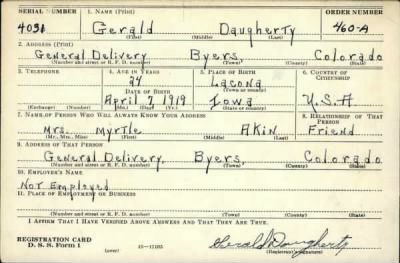 SERIAL NUMBER 1. NAME (Print) ORDER NUMBER
4031 Gerald Daugherty 460-A
(First) (Middle) (Last)
2. ADDRESS (Print)
General Delivery Byers, Colorado
(Number and street or R. F. D. number) (Town) (County) (State)
3. TELEPHONE 4. AGE IN YEARS 5. PLACE OF BIRTH 6. COUNTRY OF CITIZENSHIP
Lacona
DATE OF BIRTH (Town or county)
April 7 1919 Iowa U.S.A
(Exchange) (Number) (Mo.) (Day) (Yr.) (State or country)
7. NAME OF PERSON WHO WILL ALWAYS KNOW YOUR ADDRESS 8. RELATIONSHIP OF THAT PERSON
Mrs. Myrtle Akin Friend
(Mr., Mrs., Miss) (First) (Middle) (Last)
9. ADDRESS OF THAT PERSON
General Delivery, Byers, Colorado
(Number and street or R. F. D. number) (Town) (County) (State)
10. EMPLOYER'S NAME
Not Employed
11. PLACE OF EMPLOYMENT OR BUSINESS
(Number and street or R. F. D. number) (Town) (County) (State)
I AFFIRM THAT I HAVE VERIFIED ABOVE ANSWERS AND THAT THEY ARE TRUE.
REGISTRATION CARD
D. S. S. Form 1 (over) Gerald Daugherty
(Registrant's signature)